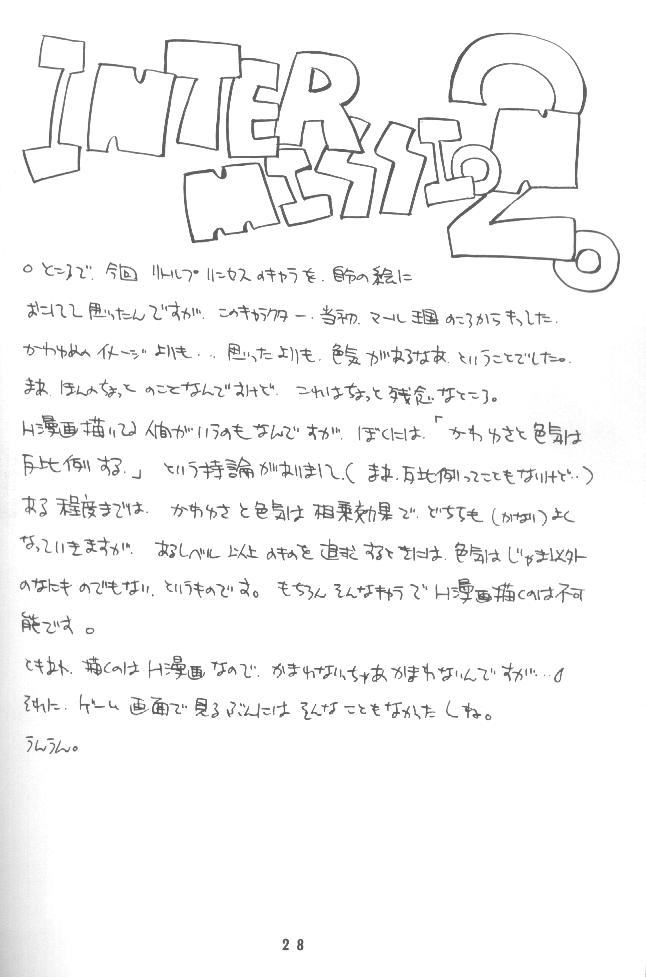 INTER
MISSION
No.2
○ところで、今回 リトルプリンセスのキャラを、自分の絵に
おこしてて思ったんですが、このキャラクター、当初、マール王国のころからもってした、
かわゆめのイメージよりも‥、思ったよりも、色気があるなあ、ということでした。
まあ、ほんのちょっとのことなんですけど、これはちょっと残念なところ。
H漫画描いてる人間がいうのもなんですが、ぼくには、「かわゆさと色気は
反比例する。」という持論がありまして、(まあ、反比例ってこともないけど‥)
ある程度までは、かわゆさと色気は相乗効果で、どちらも(かなり)よく
なっていきますが、あるレベル以上のものを追求するときには、色気はじゃま以外
のなにものでもない、というものです。もちろんそんなキャラでH漫画描くのは不可
能です。
ともあれ、描くのはH漫画なので、かまわないっちゃあかまわないんですが‥‥。
それに、ゲーム画面で見るぶんにはそんなこともなかったしね。
うんうん。
28